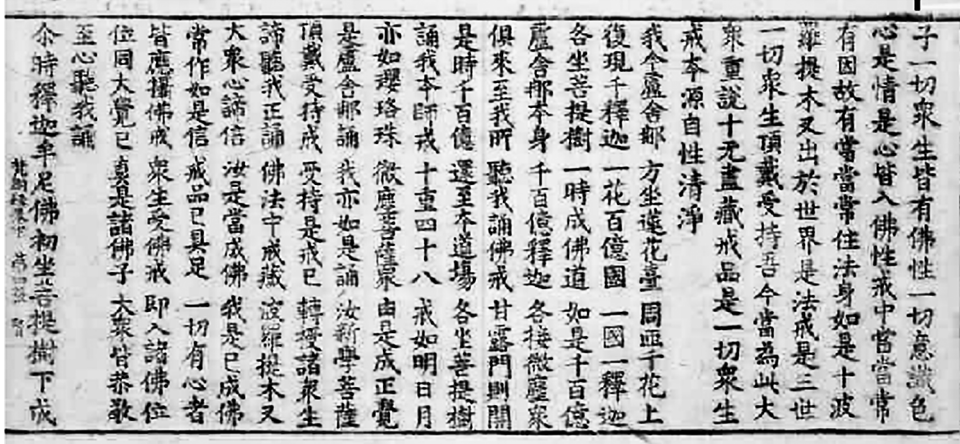 子一切衆生皆有佛性一切意識色
心是情是心皆入佛性戒中當當常
有因故有當當常住法身如是十波
羅提木叉出於世界是法戒是三世
一切衆生頂戴受持吾今當為此大
衆重說十无盡藏戒品是一切衆生
戒本源自性清淨
我今盧舍那 方坐蓮花臺 周匝千花上
復現千釋迦 一花百億國 一國一釋迦
各坐菩提樹 一時成佛道 如是千百億
盧舍那本身 千百億釋迦 各接微塵衆
俱來至我所 聽我誦佛戒 甘露門則開
是時千百億 還至本道場 各坐菩提樹
誦我本師戒 十重四十八 戒如明日月
亦如瓔珞珠 微塵菩薩衆 由是成正覺
是盧舍那誦 我亦如是誦 汝新學菩薩
頂戴受持戒 受持是戒已 轉授諸衆生
諦聽我正誦 佛法中戒藏 波羅提木叉
大衆心諦信 汝是當成佛 我是已成佛
常作如是信 戒品已具足 一切有心者
皆應攝佛戒 衆生受佛戒 即入諸佛位
位同大覺已 真是諸佛子 大衆皆恭敬
至心聽我誦
梵網經
尒時釋迦牟尼佛初坐菩提樹下成